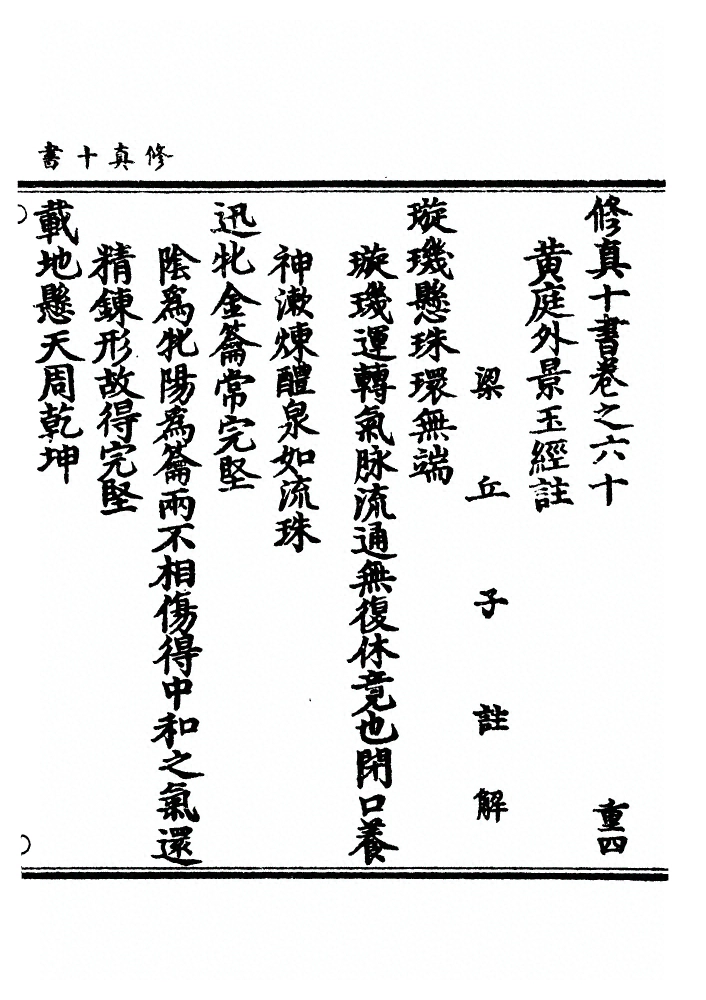 修真十書
修真十書卷之六十 重四
黃庭外景玉經註
梁丘子註解
璇璣懸珠環無端
璇璣運轉氣脉流通無復休竟也閉口養
神漱煉醴泉如流珠
迅牝金籥常完堅
陰為牝陽為籥兩不相傷得中和之氣還
精鍊形故得完堅
載地懸天周乾坤